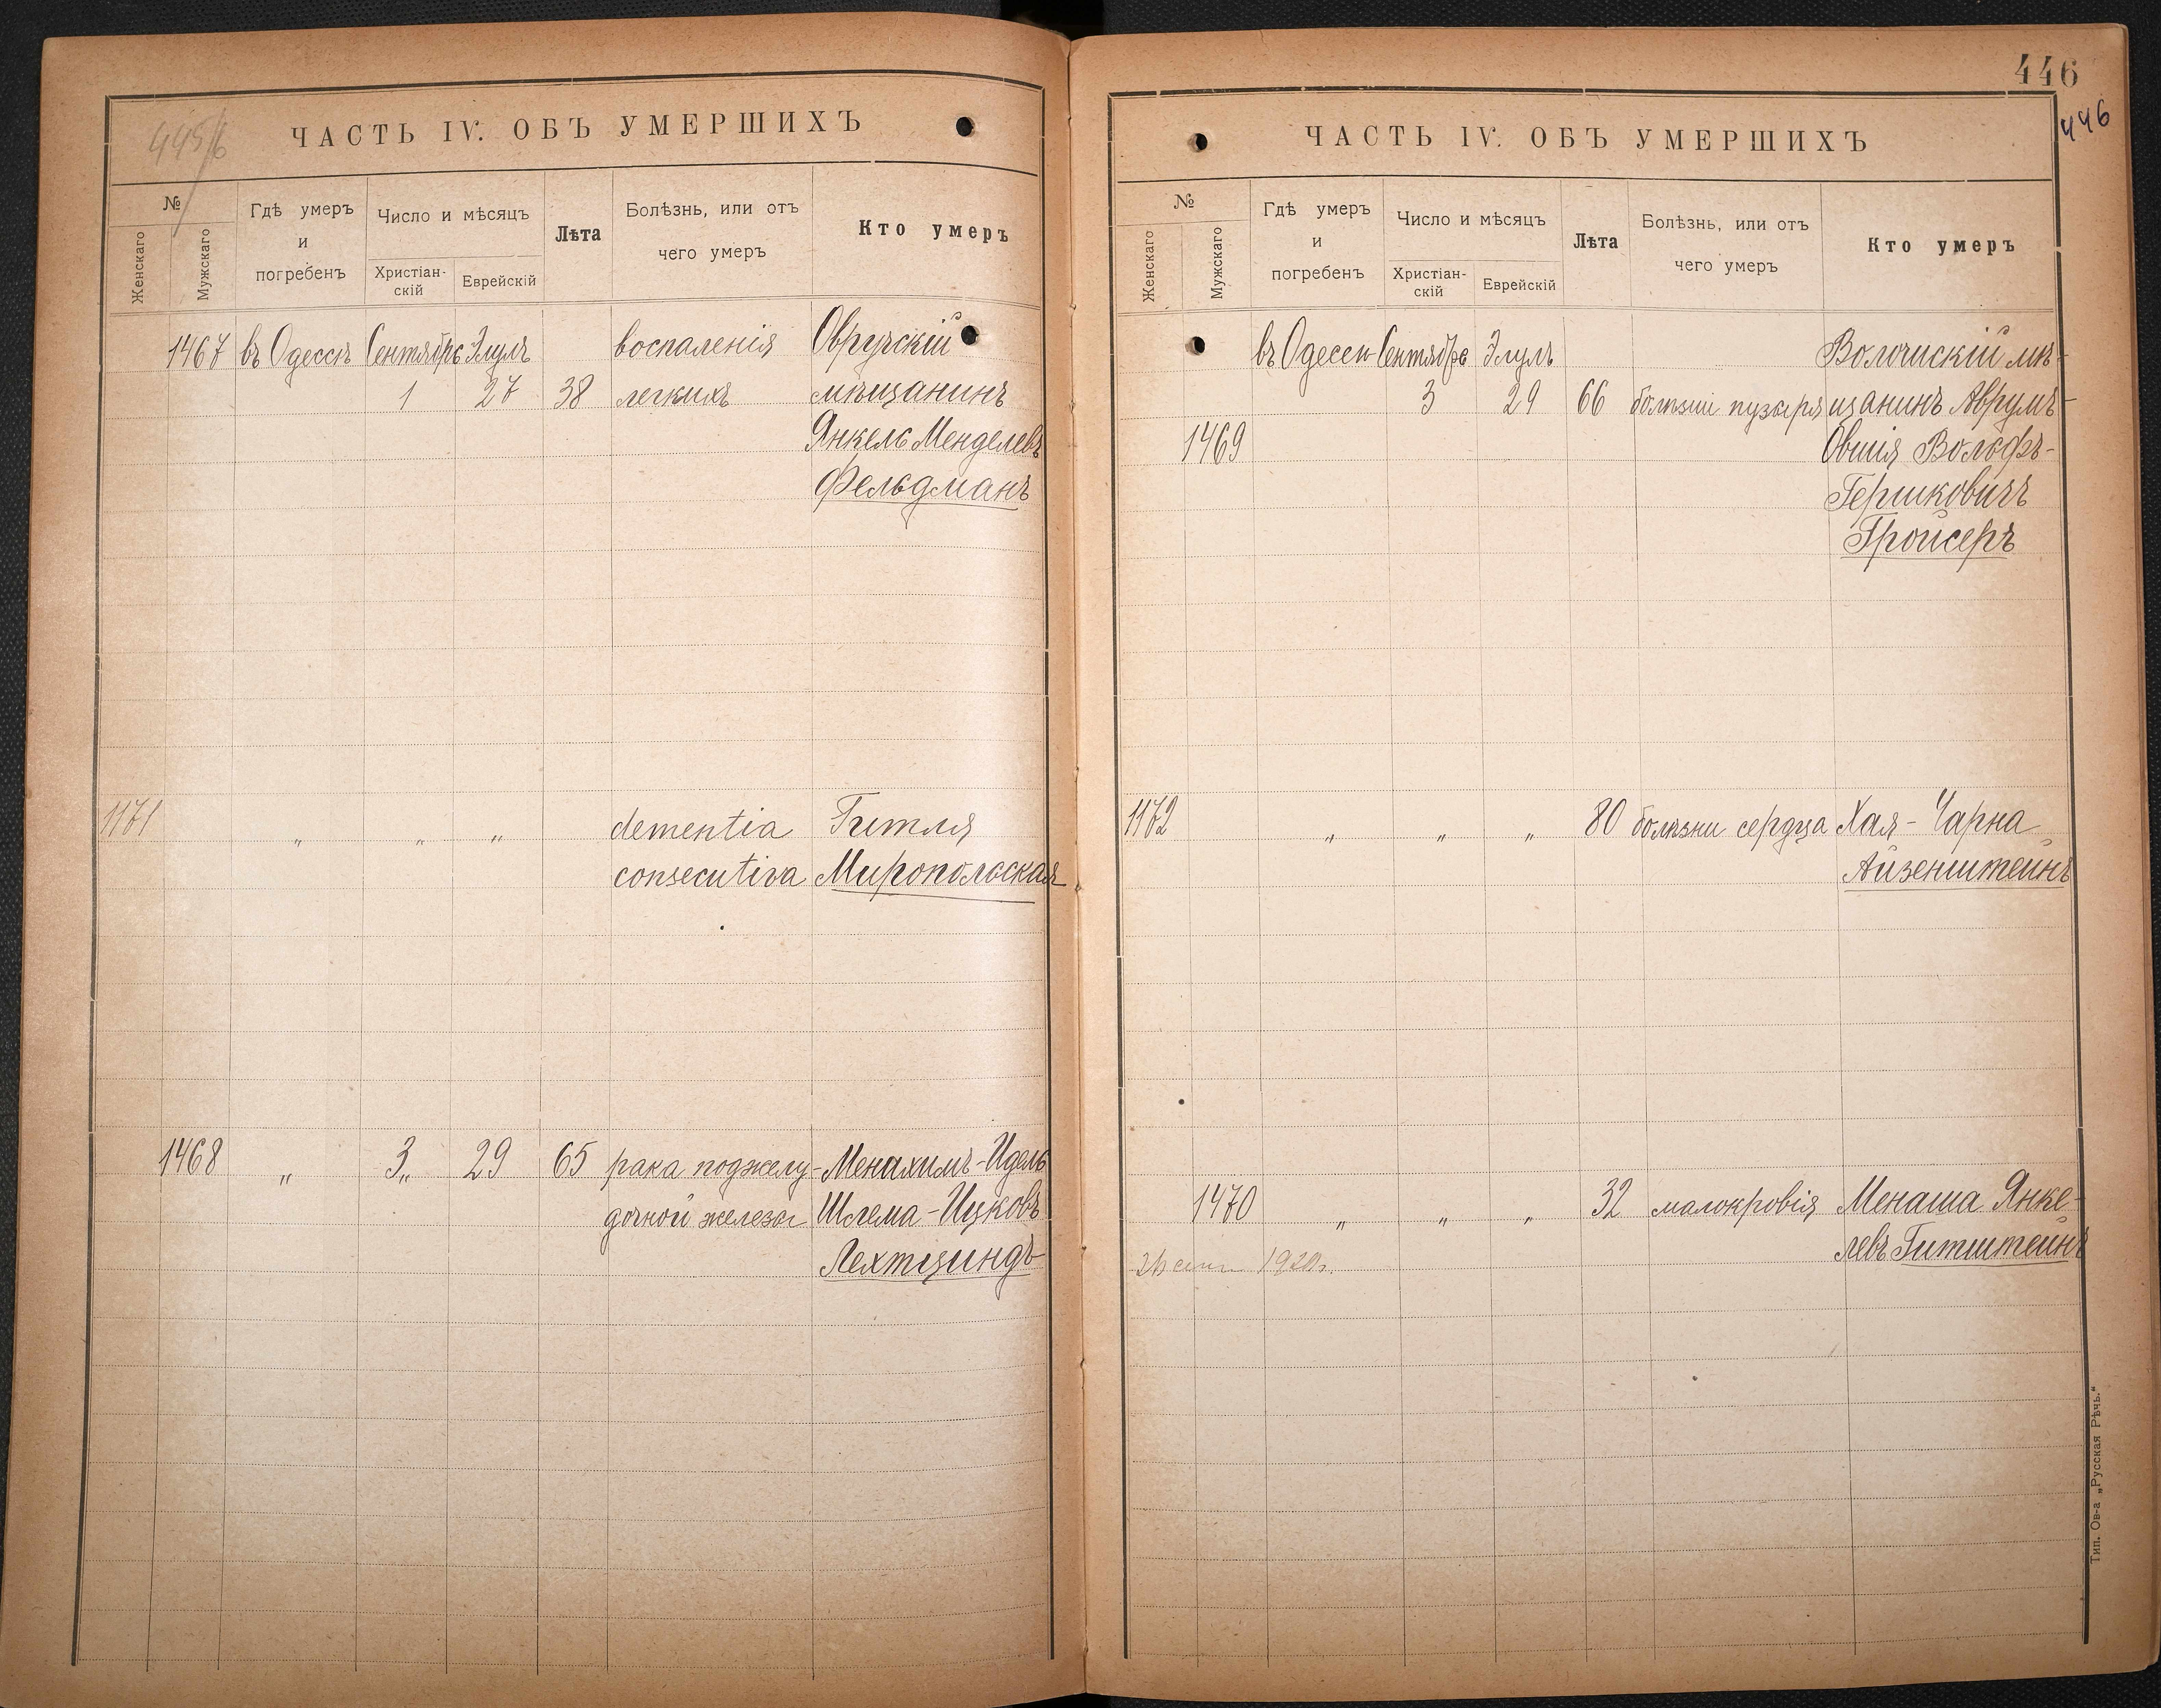 445/6
ЧАСТЬ IV. ОБЪ УМЕРШИХЪ
№
Женскаго
Мужскаго
Гдѣ умеръ
и
погребенъ
Число и мѣсяцъ
Христіан-
скій
Еврейскій
Лѣта
Болѣзнь, или отъ
чего умеръ
Кто умеръ
1467 въ Одессѣ Сентябрь Элулъ воспаленія Овручскій
1 27 38 легкихъ мѣщанинъ
Янкель Менделевъ
Фельдманъ
1171 " " " dementia Гитля
consecutiva Миропольская
1468 " 3 " 29 65 рака поджелу- Менахимъ-Идель
дочной железы Шлема-Ицковъ
Лехтциндъ
446
446
ЧАСТЬ IV. ОБЪ УМЕРШИХЪ
№
Женскаго
Мужскаго
Гдѣ умеръ
и
погребенъ
Число и мѣсяцъ
Христіан-
скій
Еврейскій
Лѣта
Болѣзнь, или отъ
чего умеръ
Кто умеръ
въ Одессѣ Сентябрь Элулъ Волочискій мѣ-
3 29 66 болѣзни пузыря щанинъ Аврумъ-
1469 Овшія Вольфъ-
Гершковичъ
Гройсеръ
1172 " " " 80 болѣзни сердца Хая-Чарна
Айзенштейнъ
1470 " " " 32 малокровія Менаша Янке-
левъ Гитштейнъ
1920г.
Тип. Ов-а „Русская Рѣчь.“